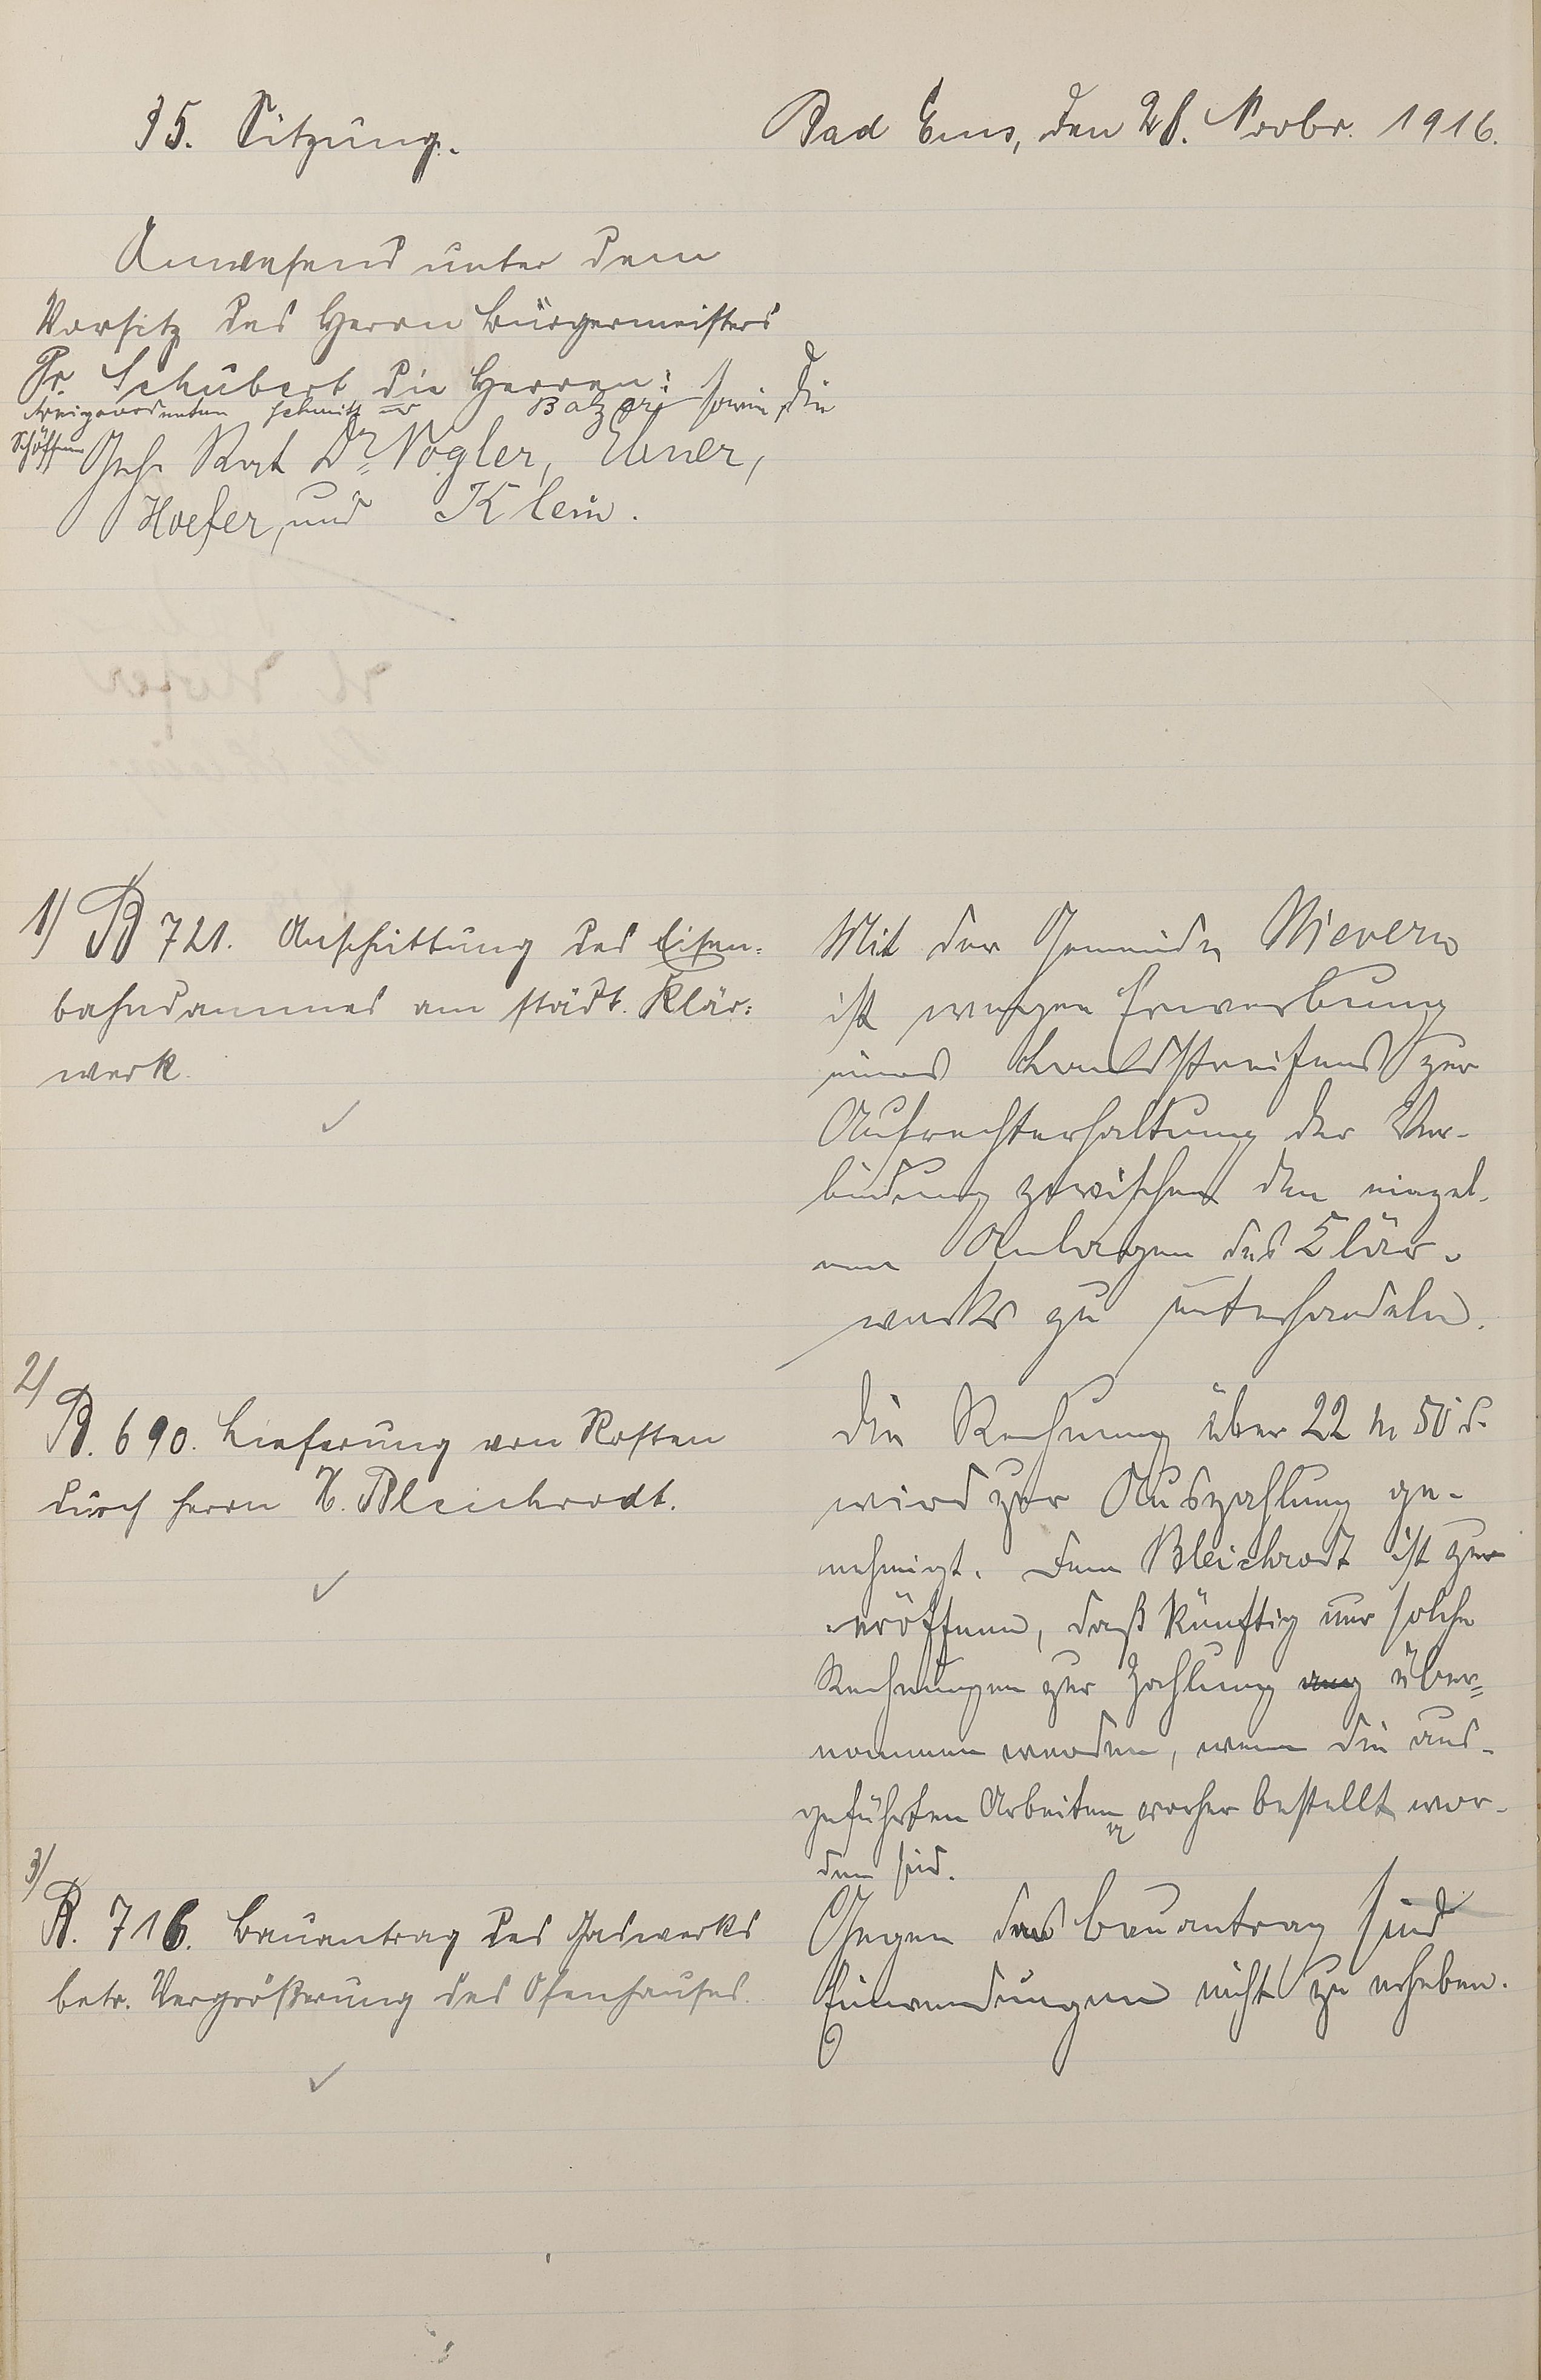 35. Sitzung.
Bad Ems, den 28. Novbr. 1916.
Anwesend unter dem
Vorsitz des Herrn Bürgermeisters
Dr. Schubert die Herren:
Beigeordneten Schmitt Balzer, sowie die
Schöffen Geh. Rat Dr. Vogler, Ebner,
Hoefer, und Klein.
1) B 721. Anschüttung des Eisen-
bahndammes am städt. Klär-
werk.
Mit der Gemeinde Nievern
ist wegen Erwerbung
eines Landstreifens zur
Aufrechterhaltung der Ver-
bindung zwischen den einzel-
nen Anlagen des Klär-
werks zu unterhandeln.
2)
B. 690. Lieferung von Kosten
durch Herrn H. Bleichrodt.
Die Rechnung über 22 M 50 d.
wird zur Auszahlung ge-
nehmigt. Dem Bleichrodt ist zu
eröffnen, daß künftig nur solche
Rechnungen zur Zahlung über-
nommen werden, wenn die aus-
geführten Arbeiten vorher bestellt wor-
den sind.
3)
B. 716. Bauantrag des Gaswerks
betr. Vergrößerung des Ofenhauses.
Gegen das Bauantrag sind
Einwendungen nicht zu erheben.